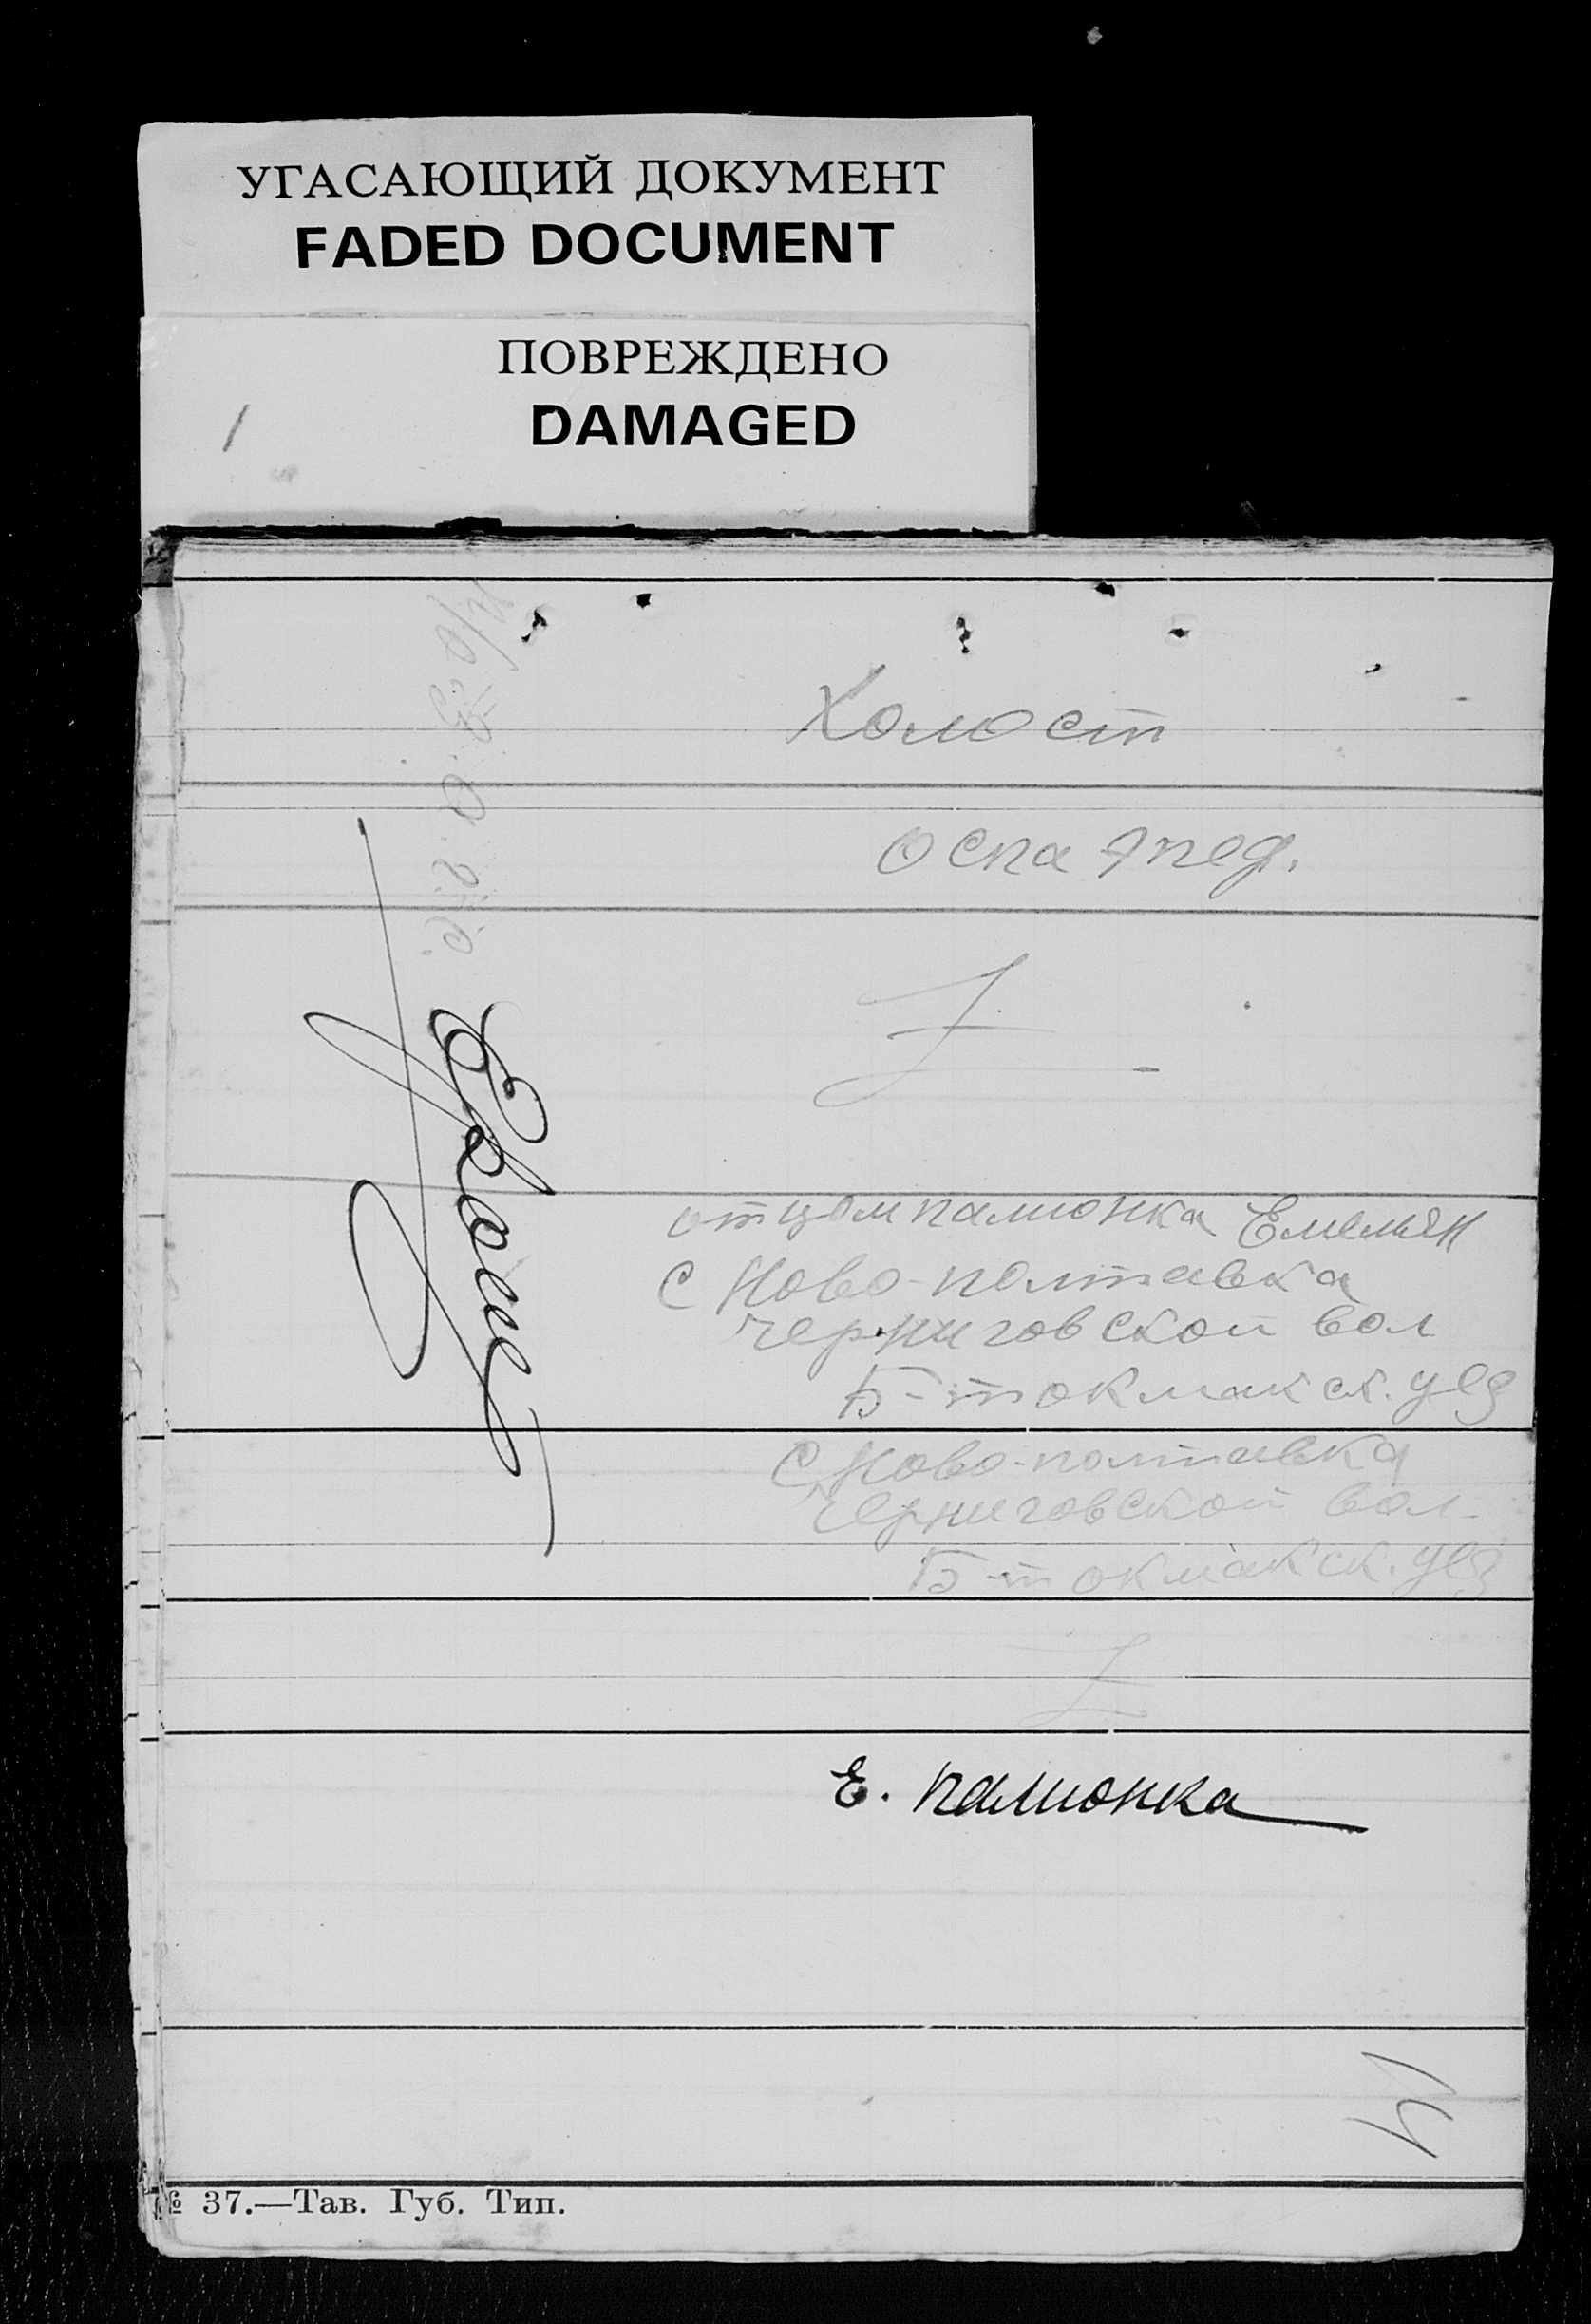 УГАСАЮЩИЙ ДОКУМЕНТ
FADED DOCUMENT
ПОВРЕЖДЕНО
DAMAGED
Холост
оспа эпед.
отцом палионка Емельян
С Ново-полтавка
черниговской вол
Б-токмакск. уез
С Ново-полтавка
черниговской вол-
Б-токмакск. уез
Е. палионка
14
№ 37.—Тав. Губ. Тип.